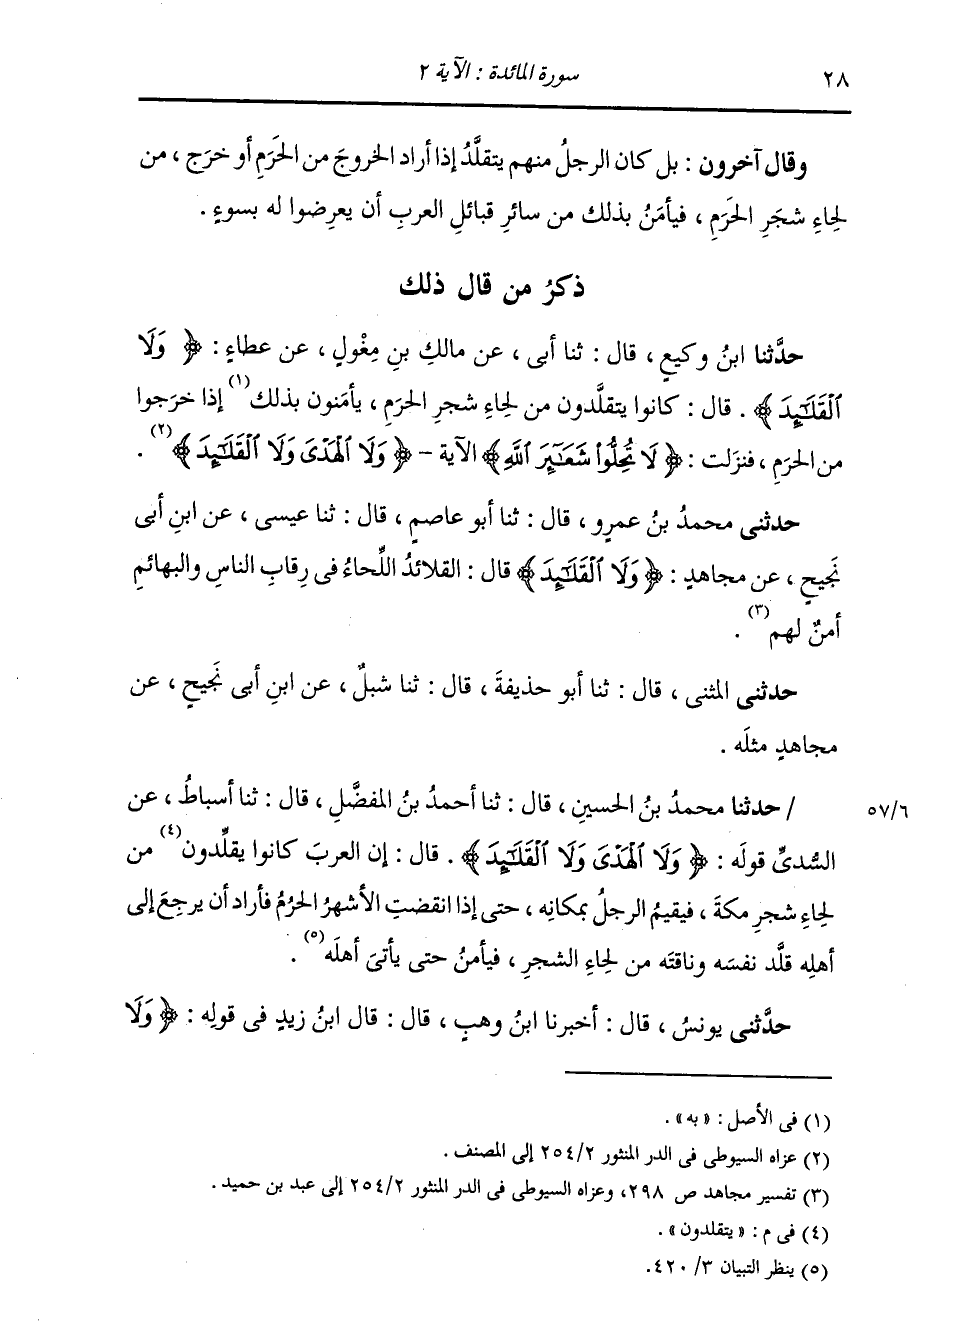 ٢٨ سورة المائدة : الآية ٢
وقال آخرون : بل كان الرجلُ منهم يتقلَّدُ إذا أراد الخروجَ من الحَرَمِ أو خرَج ، من
لِحاءِ شجَرِ الحَرَمِ ، فيأمَنُ بذلك من سائرِ قبائلِ العربِ أن يعرِضوا له بسوءٍ .
ذكرُ من قال ذلك
حدَّثنا ابنُ وكيعٍ ، قال : ثنا أبى ، عن مالكِ بنِ مِغْولٍ ، عن عطاءٍ : ﴿ وَلَا
ٱلْقَلَـٰٓئِدَ ﴾ . قال : كانوا يتقلَّدون من لحاءِ شجرِ الحرَمِ ، يأمَنون بذلك(١) إذا خرَجوا
من الحرَمِ ، فنزَلت : ﴿ لَا تُحِلُّوا۟ شَعَـٰٓئِرَ ٱللَّهِ ﴾ الآية – ﴿ وَلَا ٱلْهَدْىَ وَلَا ٱلْقَلَـٰٓئِدَ ﴾(٢) .
حدثنى محمدُ بنُ عمرٍو ، قال : ثنا أبو عاصمٍ ، قال : ثنا عيسى ، عن ابنِ أبى
نَجيحٍ ، عن مجاهدٍ : ﴿ وَلَا ٱلْقَلَـٰٓئِدَ ﴾ قال : القلائدُ اللِّحاءُ فى رِقابِ الناسِ والبهائمِ
أمنٌ لهم(٣) .
حدثنى المثنى ، قال : ثنا أبو حذيفةَ ، قال : ثنا شبلٌ ، عن ابنِ أبى نَجيحٍ ، عن
مجاهدٍ مثلَه .
٥٧/٦ / حدثنا محمدُ بنُ الحسينِ ، قال : ثنا أحمدُ بنُ المفضَّلِ ، قال : ثنا أسباطُ ، عن
السُّدىِّ قولَه : ﴿ وَلَا ٱلْهَدْىَ وَلَا ٱلْقَلَـٰٓئِدَ ﴾ . قال : إن العربَ كانوا يقلِّدون(٤) من
لحاءِ شجرِ مكةَ ، فيقيمُ الرجلُ بمكانِه ، حتى إذا انقضتِ الأشهرُ الحرُمُ فأراد أن يرجِعَ إلى
أهلِه قلَّد نفسَه وناقتَه من لحاءِ الشجرِ ، فيأمنُ حتى يأتىَ أهلَه(٥) .
حدَّثنى يونسُ ، قال : أخبرنا ابنُ وهبٍ ، قال : قال ابنُ زيدٍ فى قولِه : ﴿ وَلَا
(١) فى الأصل : « به » .
(٢) عزاه السيوطى فى الدر المنثور ٢٥٤/٢ إلى المصنف .
(٣) تفسير مجاهد ص ٢٩٨، وعزاه السيوطى فى الدر المنثور ٢٥٤/٢ إلى عبد بن حميد .
(٤) فى م : « يتقلدون » .
(٥) ينظر التبيان ٣/ ٤٢٠.